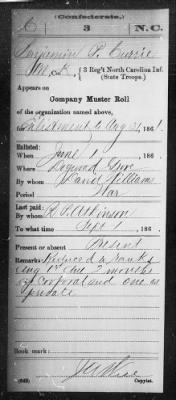 (Confederate.)
C 3 N.C.
Benjamin P. Currie
Co. K, 3 Reg't North Carolina Inf.
(State Troops.)
Appears on
Company Muster Roll
of the organization named above,
for Enlistment to Aug 31, 1861.
Enlisted:
When June 1, 186
Where
By whom David Williams
Period War
Last paid:
By whom R. P. Atkinson
To what time Sept 1, 186
Present or absent Present
Remarks: Reduced to ranks
Aug 1st due 2 months
as Corporal and one as
private
Book mark:
(642) Copyist.